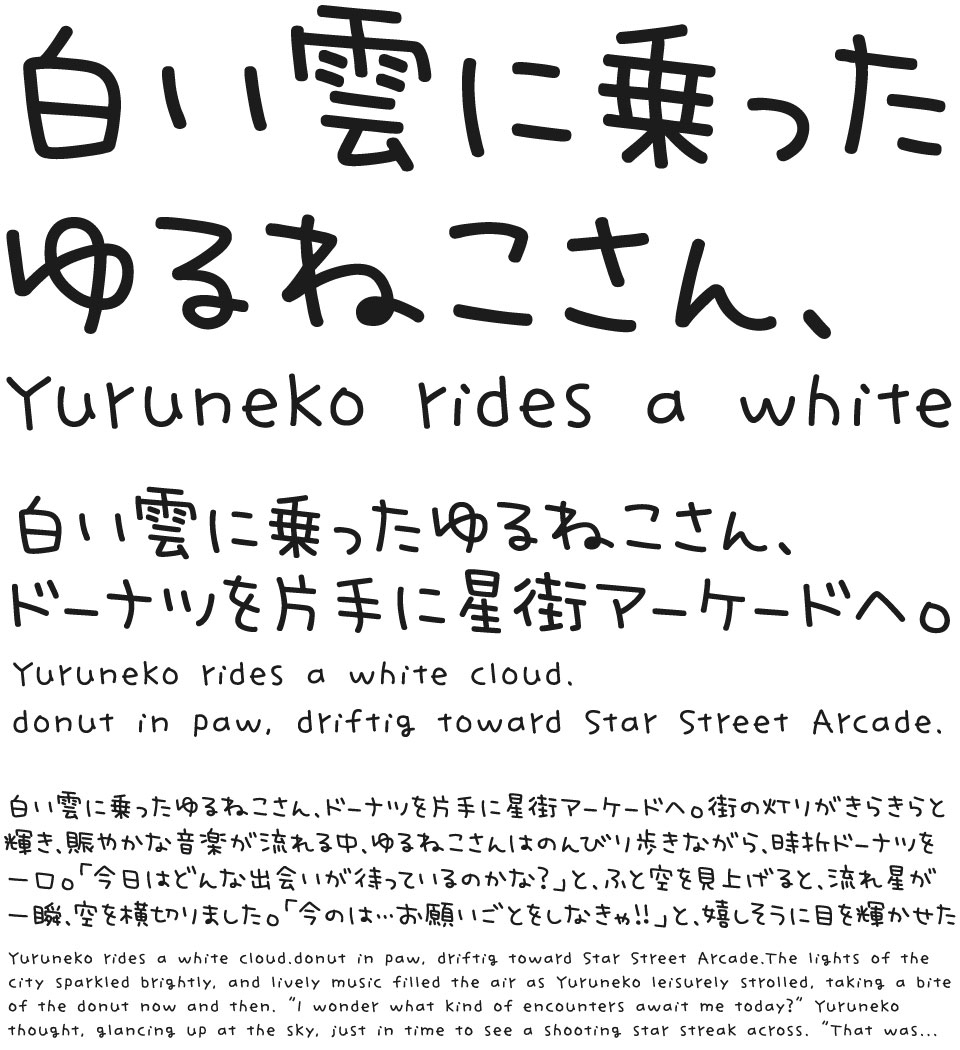 白い雲に乗った
ゆるねこさん、
Yuruneko rides a white
白い雲に乗ったゆるねこさん、
ドーナツを片手に星街アーケードへ。
Yuruneko rides a white cloud.
donut in paw, driftig toward Star Street Arcade.
白い雲に乗ったゆるねこさん、ドーナツを片手に星街アーケードへ。街の灯りがきらきらと
輝き、賑やかな音楽が流れる中、ゆるねこさんはのんびり歩きながら、時折ドーナツを
一口。「今日はどんな出会いが待っているのかな?」と、ふと空を見上げると、流れ星が
一瞬、空を横切りました。「今のは…お願いごとをしなきゃ!!」と、嬉しそうに目を輝かせた
Yuruneko rides a white cloud.donut in paw, driftig toward Star Street Arcade.The lights of the
city sparkled brightly, and lively music filled the air as Yuruneko leisurely strolled, taking a bite
of the donut now and then. "I wonder what kind of encounters await me today?" Yuruneko
thought, glancing up at the sky, just in time to see a shooting star streak across. "That was...